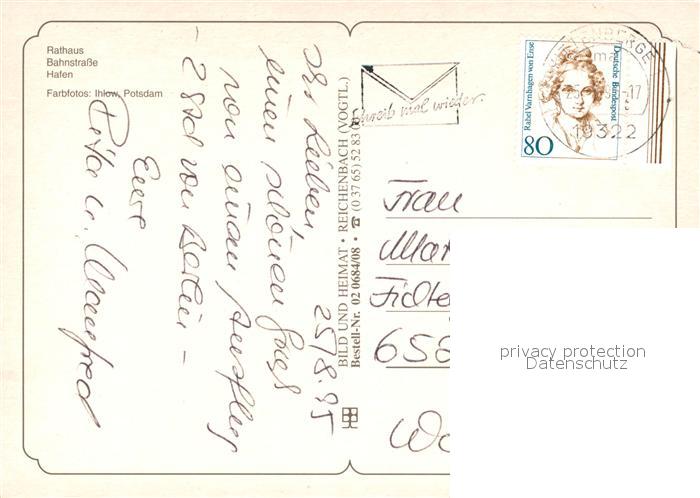 Rathaus
Bahnstraße
Hafen
Farbfotos: Ihlow, Potsdam
25/8.95
Ihr Lieben,
einen schönen Gruß
von einem Ausflug
- 2 Std von Berlin -
Eure
u. Manfred
BILD UND HEIMAT • REICHENBACH (VOGTL.)
Bestell-Nr. 02 0684/08 • ☎ (0 37 65) 52 83
Schreib mal wieder.
Rahel Varnhagen von Ense
Deutsche Bundespost
80
19322
Frau
Mar
Fichte
656
privacy protection
Datenschutz